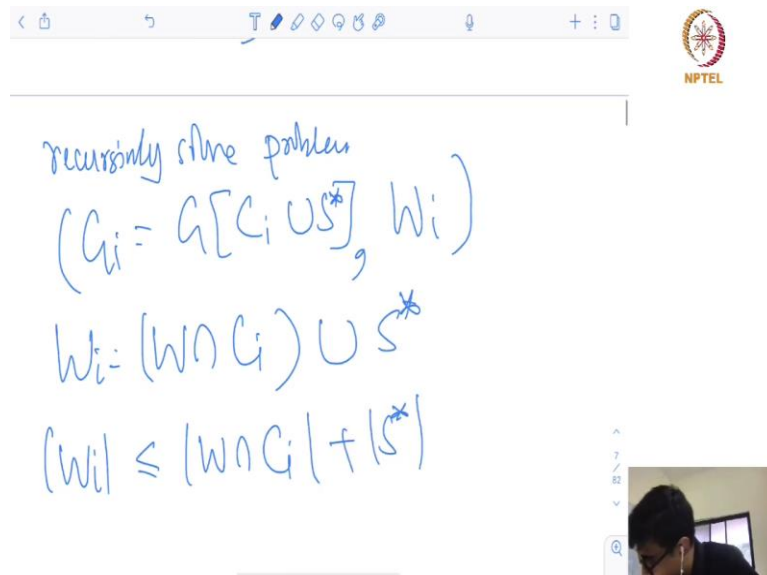 NPTEL
recursively solve problem
(Gi = G[Ci ∪ S*], Wi)
Wi = (W ∩ Ci) ∪ S*
|Wi| ≤ |W ∩ Ci| + |S*|
7
/
82